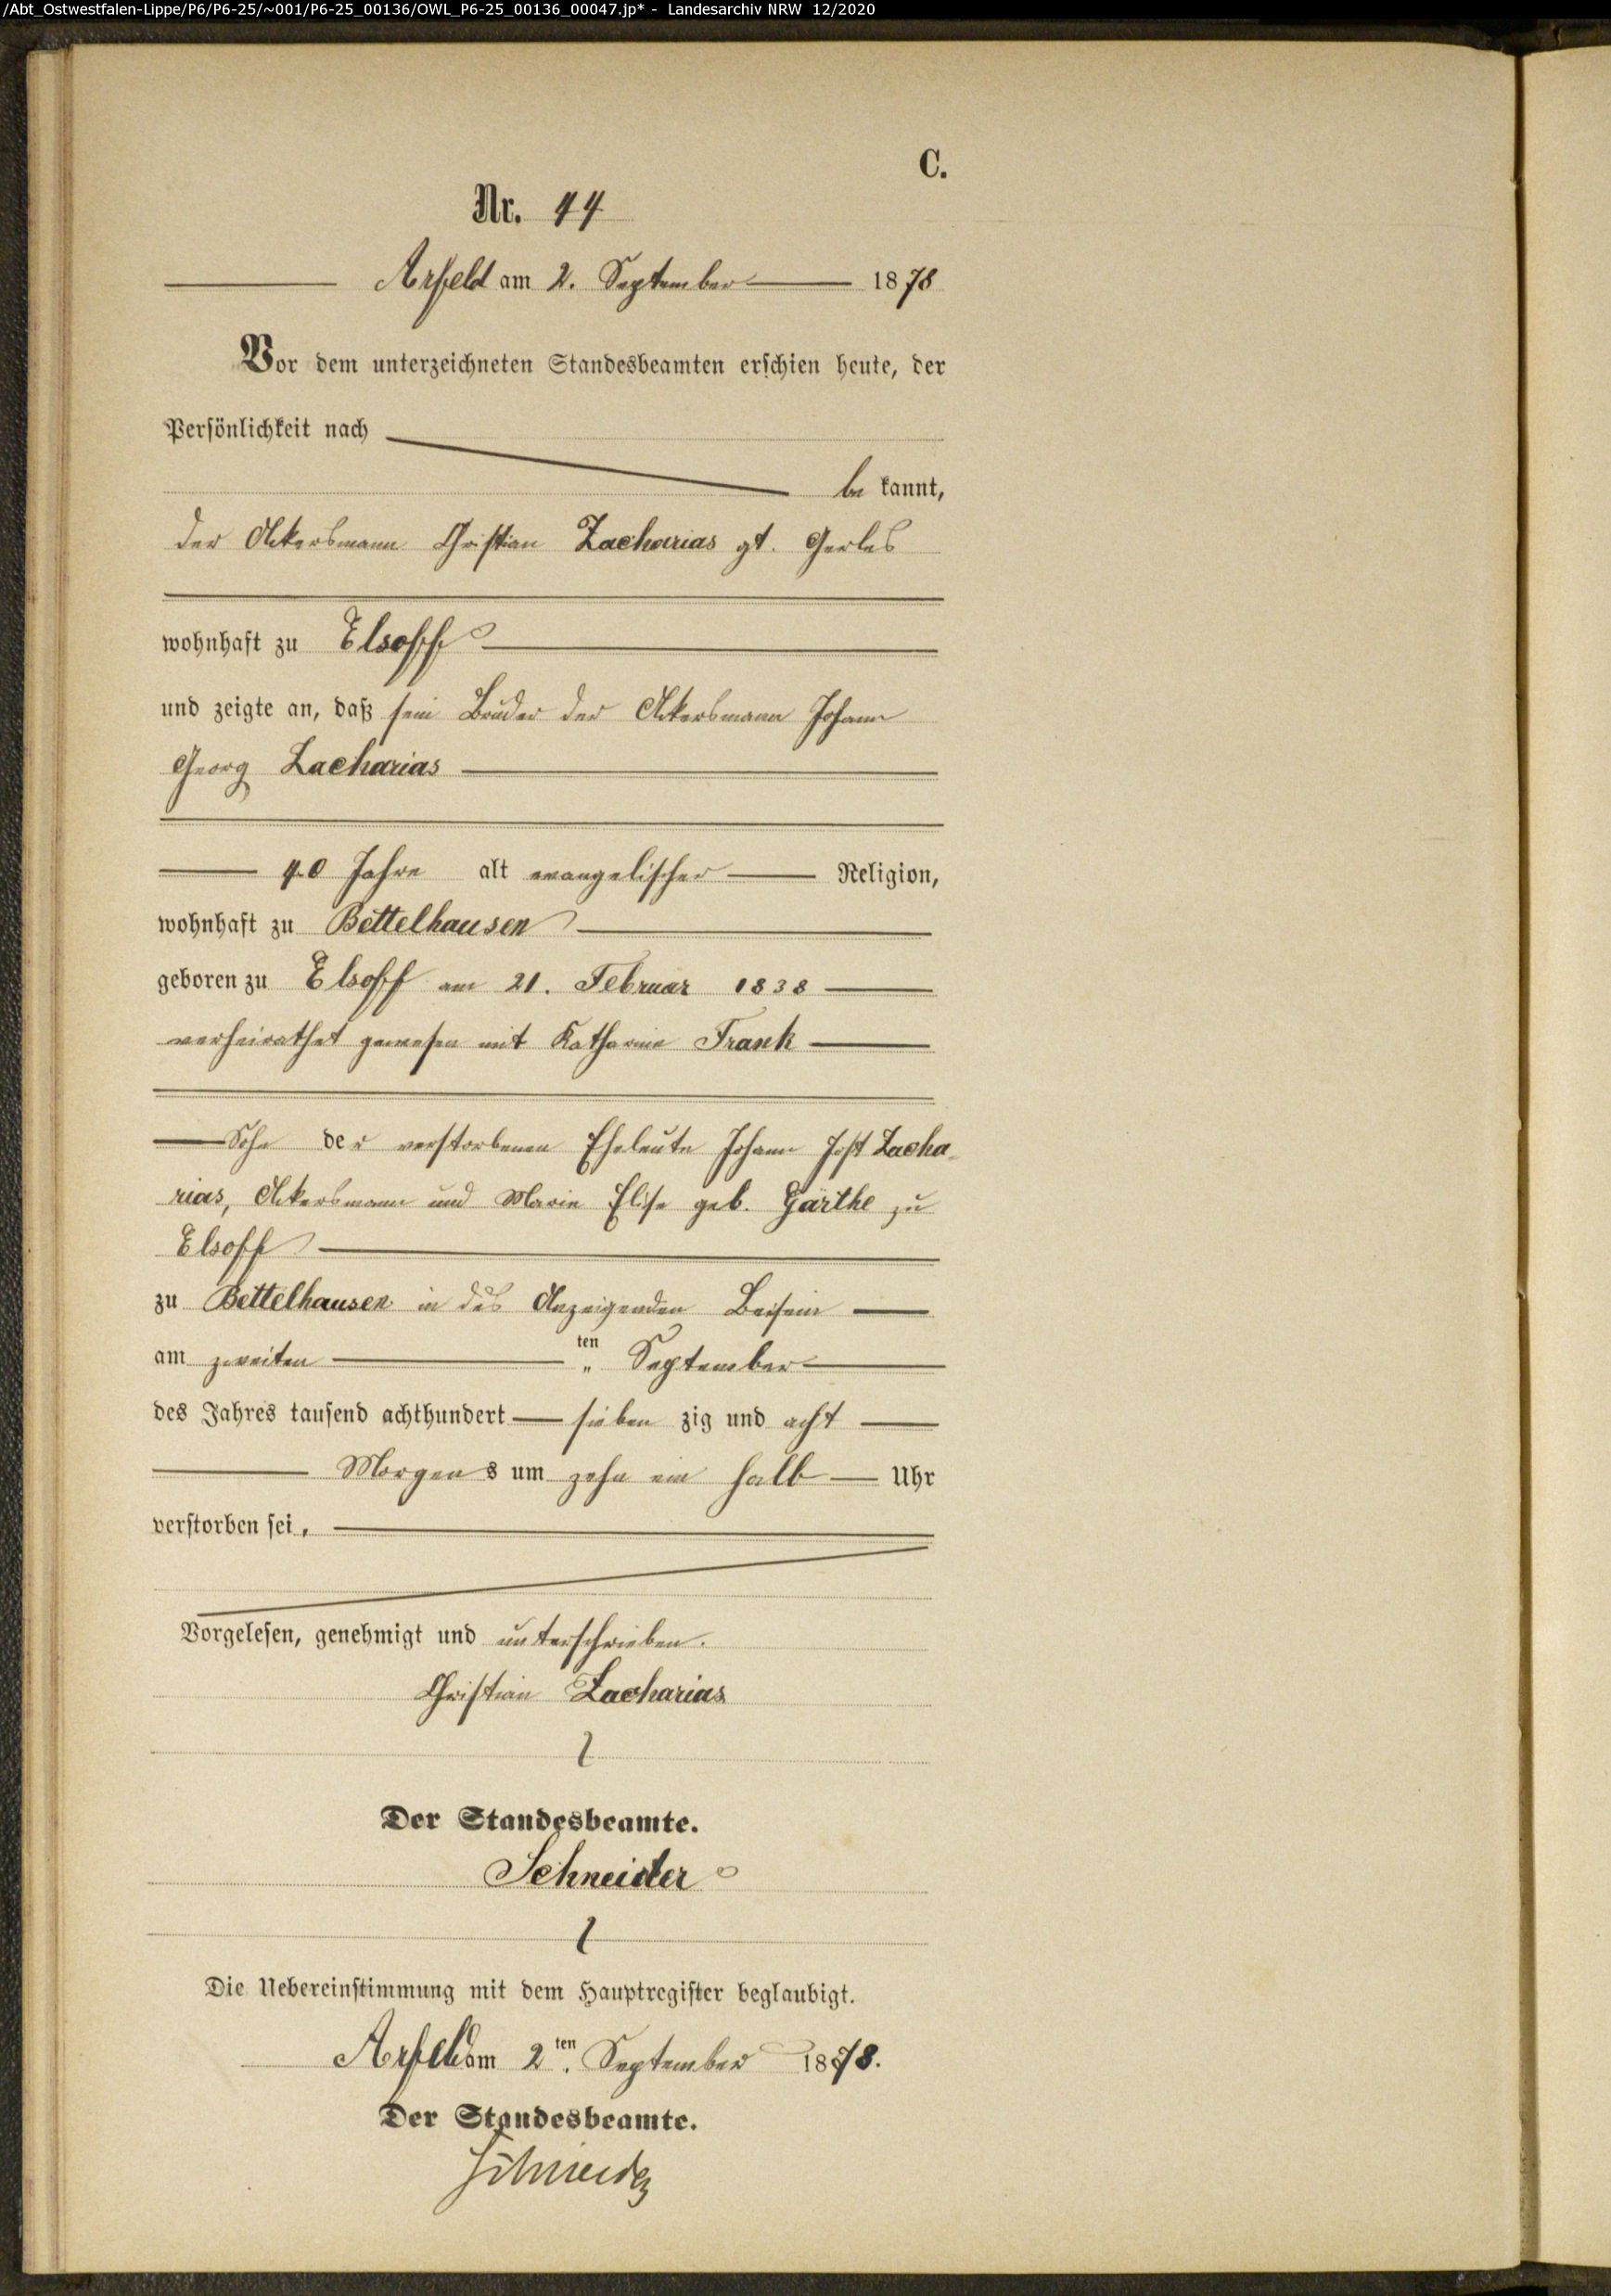 /Abt_Ostwestfalen-Lippe/P6/P6-25/~001/P6-25_00136/OWL_P6-25_00136_00047.jp* - Landesarchiv NRW 12/2020
C.
Nr. 44
Arfeld am 2. September 1878
Vor dem unterzeichneten Standesbeamten erschien heute, der
Persönlichkeit nach
be kannt,
der Ackersmann Christian Zacharias gt. Gerles
wohnhaft zu Elsoff
und zeigte an, daß sein Bruder der Ackersmann Johann
Georg Zacharias
40 Jahre alt evangelischer Religion,
wohnhaft zu Bettelhausen
geboren zu Elsoff am 21. Februar 1838
verheirathet gewesen mit Katharine Frank
Sohn der verstorbenen Eheleute Johann Jost Zacha-
rias, Ackersmann und Marie Elise geb. Gärthe zu
Elsoff
zu Bettelhausen in des Anzeigenden Beisein
am zweiten ten „ September
des Jahres tausend achthundert sieben zig und acht
Morgens um zehn ein halb Uhr
verstorben sei,
Vorgelesen, genehmigt und unterschrieben.
Christian Zacharias
Der Standesbeamte.
Schneider
Die Uebereinstimmung mit dem Hauptregister beglaubigt.
Arfeld am 2ten. September 1878.
Der Standesbeamte.
Schneider